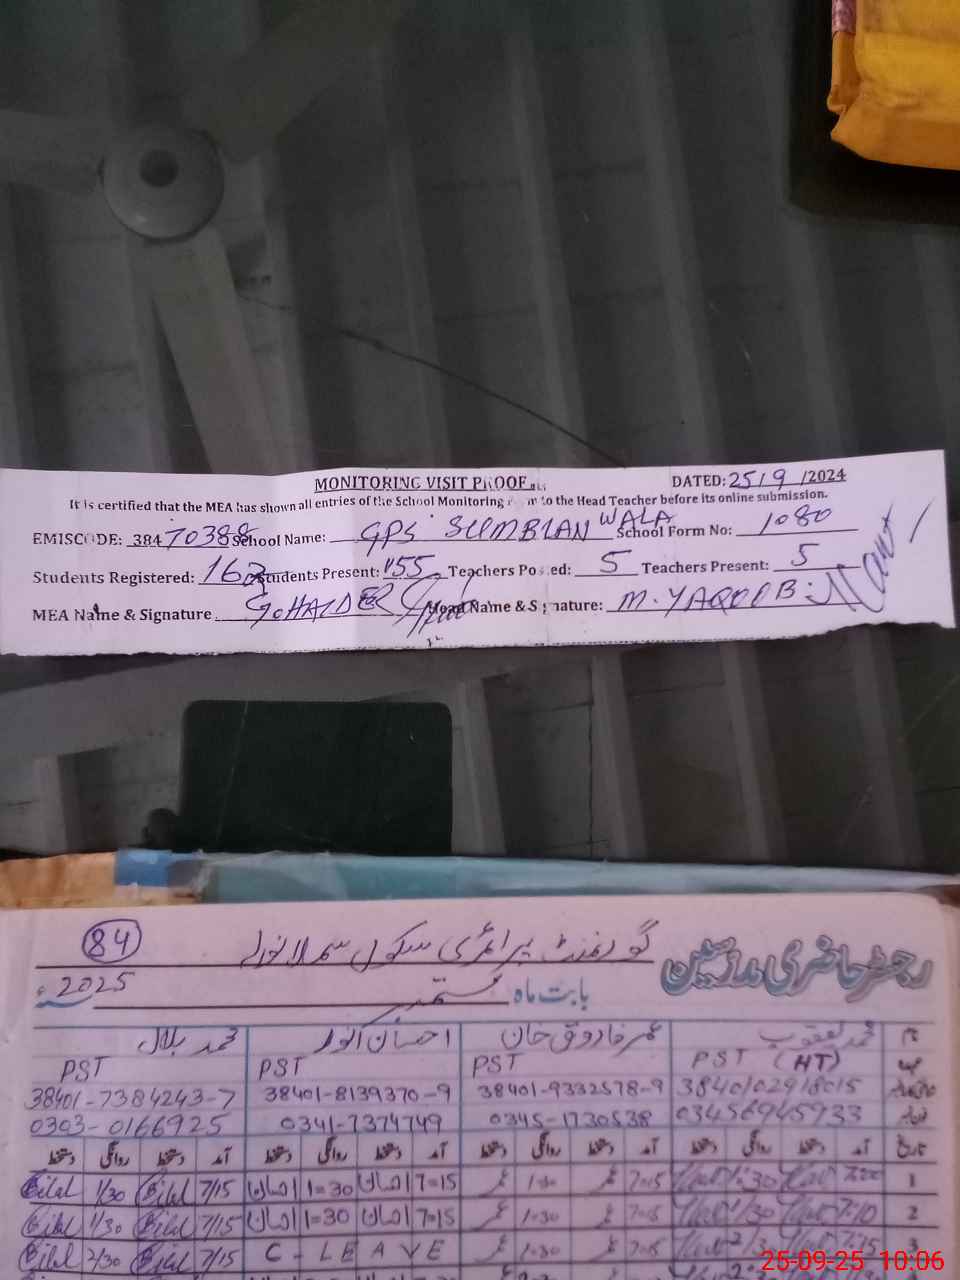 MONITORING VISIT PROOF
DATED: 25/9/2024
It is certified that the MEA has shown all entries of the School Monitoring to the Head Teacher before its online submission.
EMISCODE: 38470388 School Name: GPS SUMBLAN WALA School Form No: 1080
Students Registered: 163 Students Present: 155 Teachers Posted: 5 Teachers Present: 5
MEA Name & Signature G. HAIDER Head Name & Signature: M. YAQOOB
84
رجسٹر حاضری مدرسین گورنمنٹ پرائمری سکول
بابت ماہ ستمبر 2025ء
نام محمد یعقوب عمر فاروق خان احسان انور محمد بلال
PST (HT) PST PST PST
3840102918015 38401-9332578-9 38401-8139370-9 38401-7384243-7
03456945933 0345-1730538 0341-7374749 0303-0166925
تاریخ آمد دستخط روانگی دستخط آمد دستخط روانگی دستخط آمد دستخط روانگی دستخط آمد دستخط روانگی دستخط
1 7:00 1:30 7=15 عمر 1:30 عمر 7=15 احسان 1=30 احسان 7/15 Bilal 1/30 Bilal
2 7:10 1/30 7=15 عمر 1:30 عمر 7=15 احسان 1=30 احسان 7/15 Bilal 1/30 Bilal
3 7:15 7=15 عمر 1:30 عمر C - LEAVE 7/15 Bilal Bilal
25-09-25 10:06